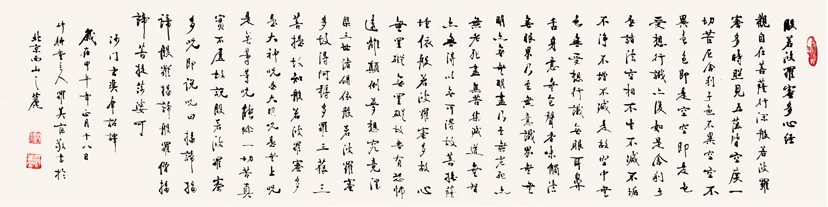 般若波羅蜜多心經
觀自在菩薩行深般若波羅
蜜多時照見五蘊皆空度一
切苦厄舍利子色不異空空不
異色色即是空空即是色
受想行識亦復如是舍利子
是諸法空相不生不滅不垢
不淨不增不減是故空中無
色無受想行識無眼耳鼻
舌身意無色聲香味觸法
無眼界乃至無意識界無無
明亦無無明盡乃至無老死亦
無老死盡無苦集滅道無智
亦無得以無所得故菩提薩
埵依般若波羅蜜多故心
無罣礙無罣礙故無有恐怖
遠離顛倒夢想究竟涅
槃三世諸佛依般若波羅蜜
多故得阿耨多羅三藐三
菩提故知般若波羅蜜多
是大神咒是大明咒是無上咒
是無等等咒能除一切苦真
實不虛故說般若波羅蜜
多咒即說咒曰揭諦揭
諦般羅揭諦般羅僧揭
諦菩提莎婆訶
沙門玄奘奉詔譯
歲在甲午年正月十八日
竹軒主人羅英敬書於
北京西山之麓